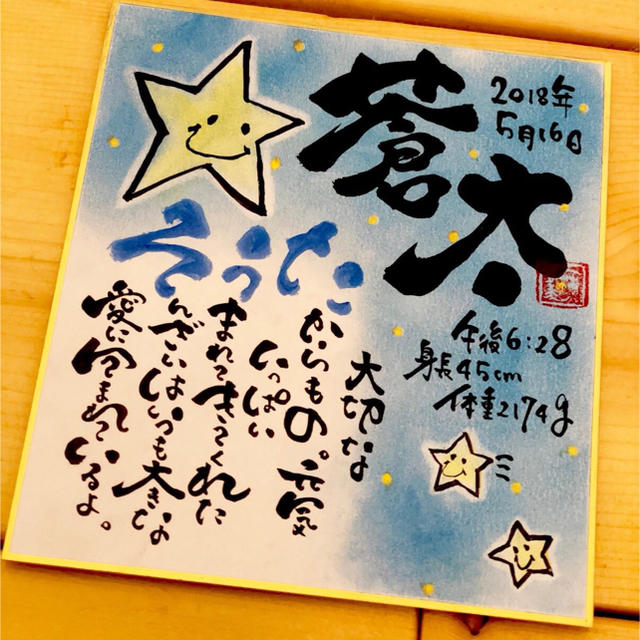 蒼太
2018年
5月16日
そうた
午後6:28
身長45cm
体重2174g
大切な
からもの。元気
いっぱい
まれてきてくれた
んざいはいつも大きな
愛に包まれているよ。